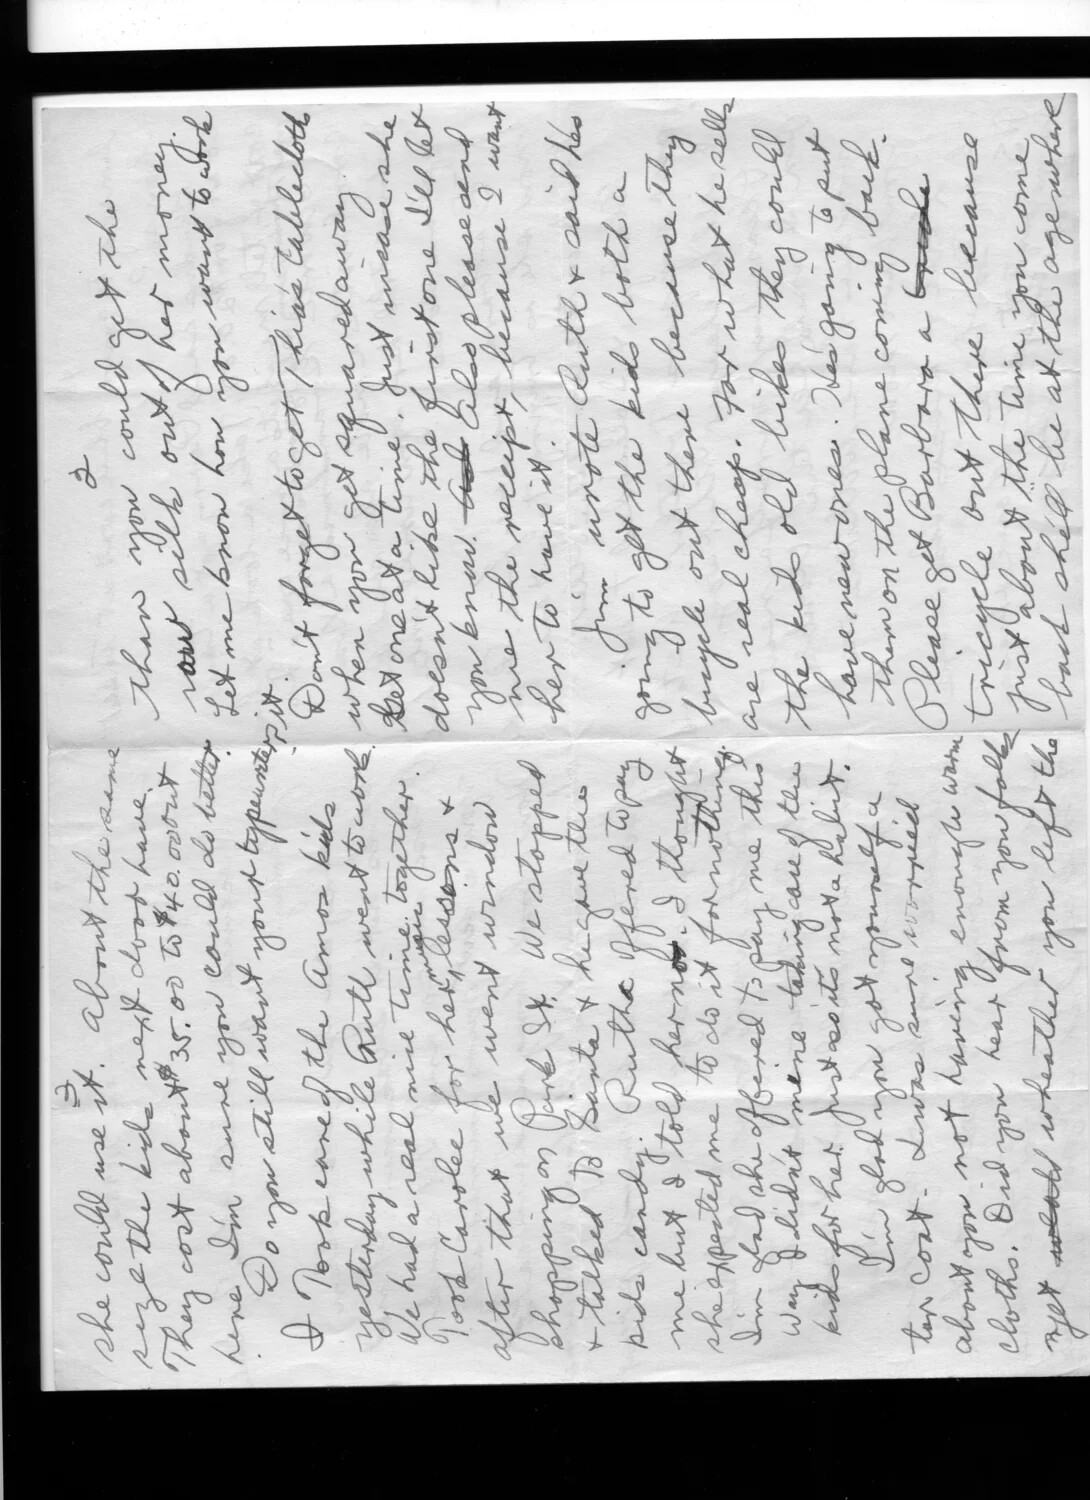 2
than you could get the
raw silk out of her money.
Let me know how you want to work
it.
Don't forget to get Thia's tablecloth
when you get squared away.
Get one at a time. Just incase she
doesn't like the first one I'll let
you know. Also please send
me the receipt, because I want
her to have it.
Jim wrote Ruth & said hes
going to get the kids both a
bicycle out there because they
are real cheap. For what he sells
the kids old bikes they could
have new ones. He's going to put
them on the plane coming back.
Please get Barbara a
tricycle out there because
just about "the time you come
back she'll be at the age where
3
she could use it. About the same
size the kids next door have.
They cost about $35.00 to $40.00 out
here I'm sure you could do better.
Do you still want your typewriter
I Took care of the Amos kids
yesterday while Ruth went to work.
We had a real nice time together.
Took Carolee for her music lessons &
after that we went window
shopping on Park St. We stopped
& talked to Santa & he gave the
kids candy. Ruth offered to pay
me but I told her no. I thought
she expected me to do it for nothing.
I'm glad she offered to pay me this
way I didn't mine taking care of the
kids for her. Just so its not a habit.
I'm glad you got yourself a
tax coat. I was sure worried
about you not having enough warm
cloths. Did you hear from you folks
yet wheather you left the